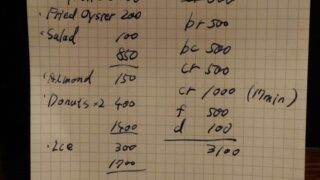 Fried Oyster 200
· Salad 100
850
· Almond 150
· Donuts ×2 400
1400
· Ice 300
1700
br 500
bc 500
cr 500
cr 1000 (17min)
f 500
d 100
3100